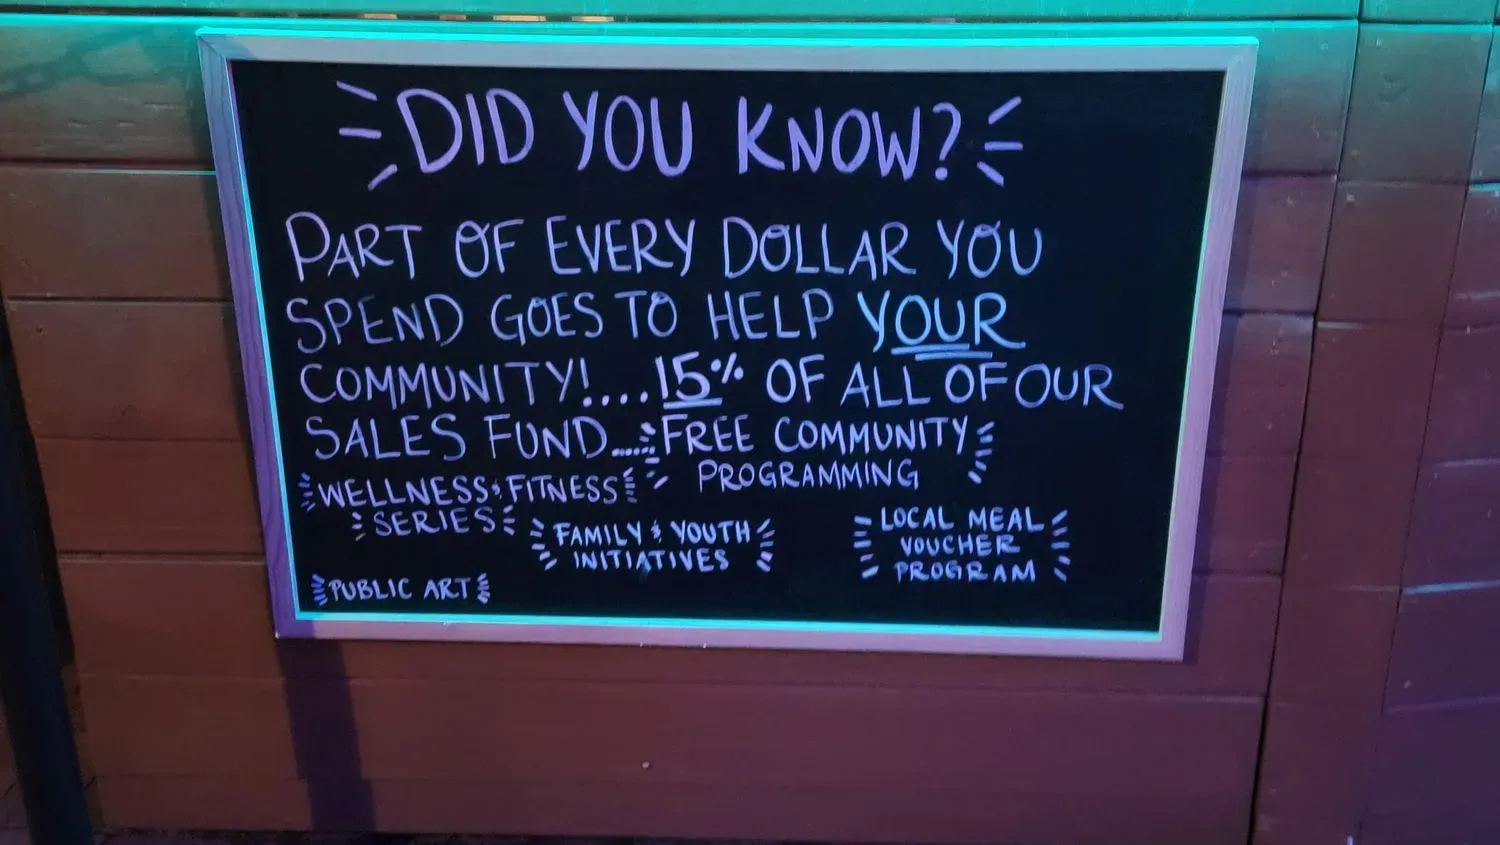 DID YOU KNOW?
PART OF EVERY DOLLAR YOU
SPEND GOES TO HELP YOUR
COMMUNITY!....15% OF ALL OF OUR
SALES FUND.....FREE COMMUNITY
PROGRAMMING
WELLNESS & FITNESS
SERIES
FAMILY & YOUTH
INITIATIVES
LOCAL MEAL
VOUCHER
PROGRAM
PUBLIC ART